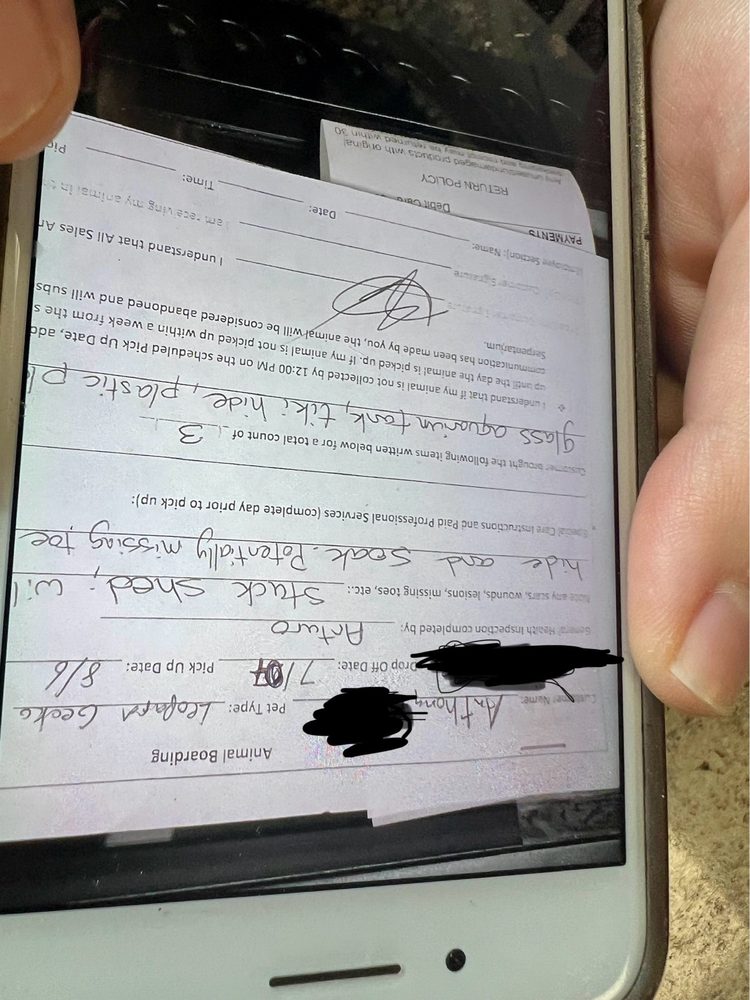 Animal Boarding
Customer Name: Anthony Pet Type: Leopard Gecko
Drop Off Date: 7/07 Pick Up Date: 8/6
General Health Inspection completed by: Arturo
Note any scars, wounds, lesions, missing toes, etc.: Stuck shed; wil
hide and soak. Potentially missing toe
Special Care Instructions and Paid Professional Services (complete day prior to pick up):
Customer brought the following items written below for a total count of 3
glass aquarium tank, tiki hide, plastic pl
❖ I understand that if my animal is not collected by 12:00 PM on the scheduled Pick Up Date, add
up until the day the animal is picked up. If my animal is not picked up within a week from the s
communication has been made by you, the animal will be considered abandoned and will subs
Serpentarium.
I understand that All Sales Ar
Customer Signature
I am receiving my animal in
Employee Section: Name: Date: Time: Pic
PAYMENTS
Debit Card
RETURN POLICY
Any unused/undamaged products with original
packaging and receipt may be returned within 30